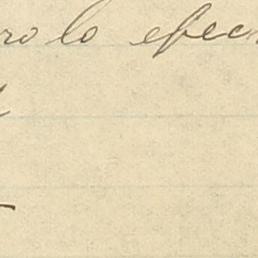 ro lo efec